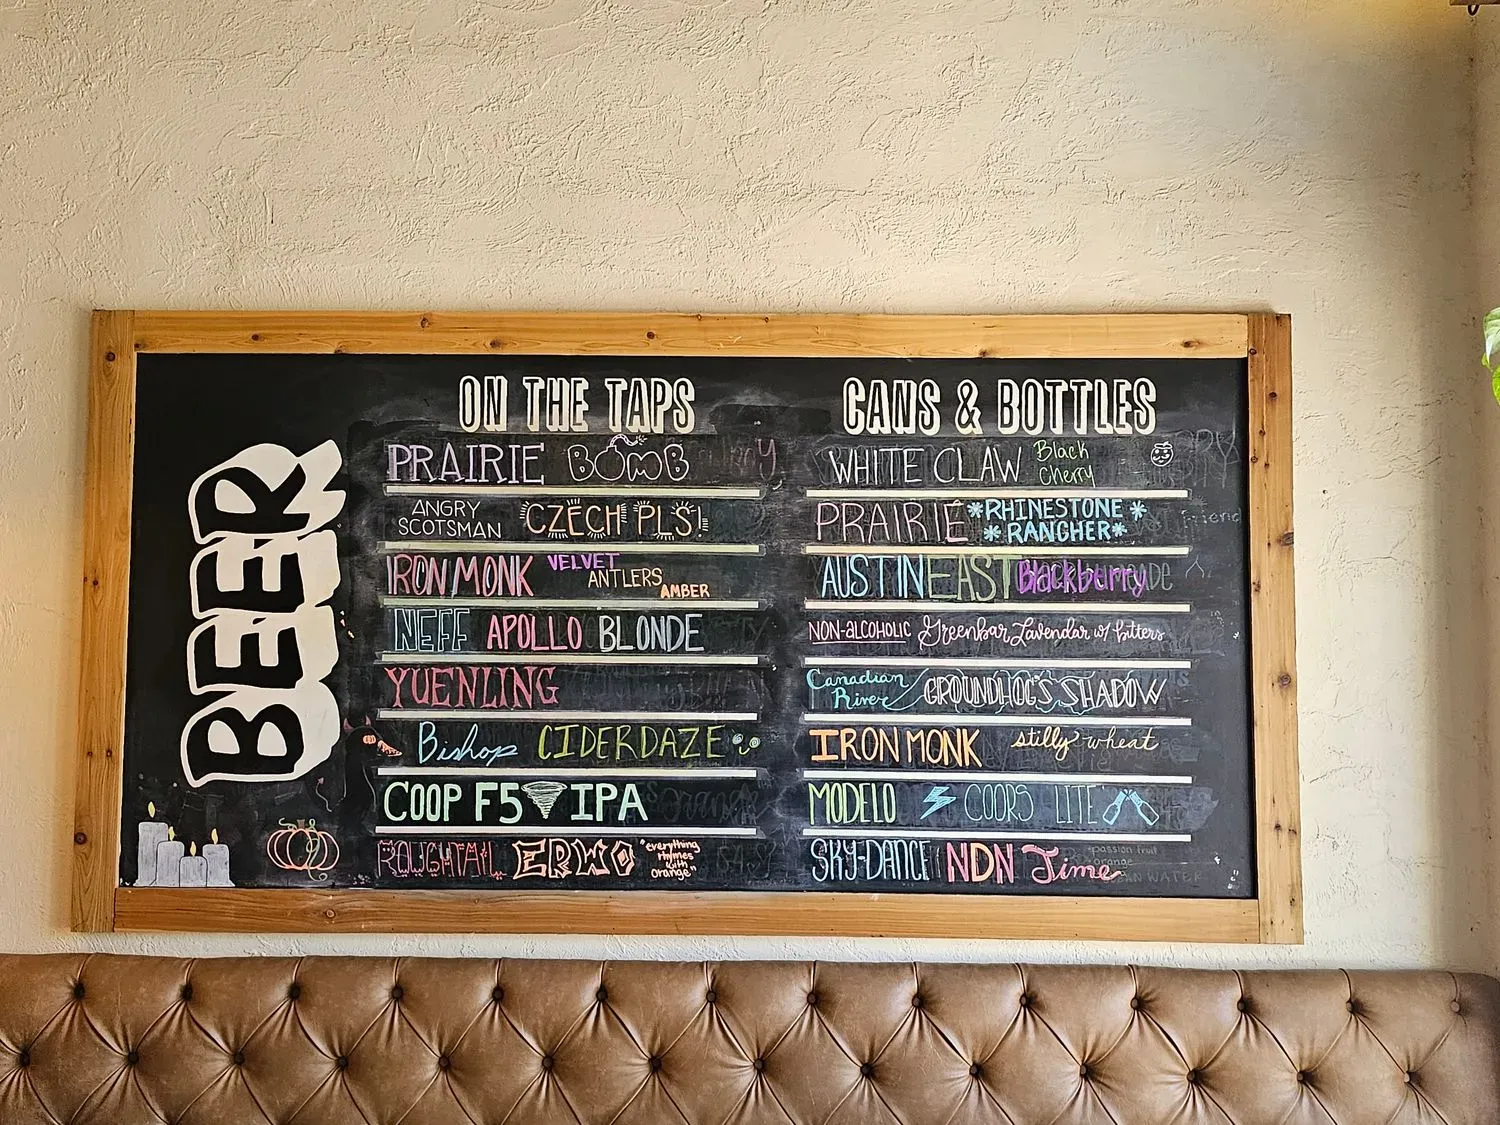 BEER
ON THE TAPS
PRAIRIE BOMB
ANGRY SCOTSMAN CZECH PLS!
IRON MONK VELVET ANTLERS AMBER
NEFF APOLLO BLONDE
YUENLING
Bishop CIDERDAZE
COOP F5 IPA
ROUGHTAIL ERWO "everything rhymes with orange"
CANS & BOTTLES
WHITE CLAW Black Cherry
PRAIRIE *RHINESTONE* *RANGHER*
AUSTIN EAST Blackberry
NON-ALCOHOLIC Greenbar Lavendar w/ bitters
Canadian River GROUNDHOG'S SHADOW
IRON MONK stilly wheat
MODELO COORS LITE
SKY-DANCE NDN Time
passion fruit orange